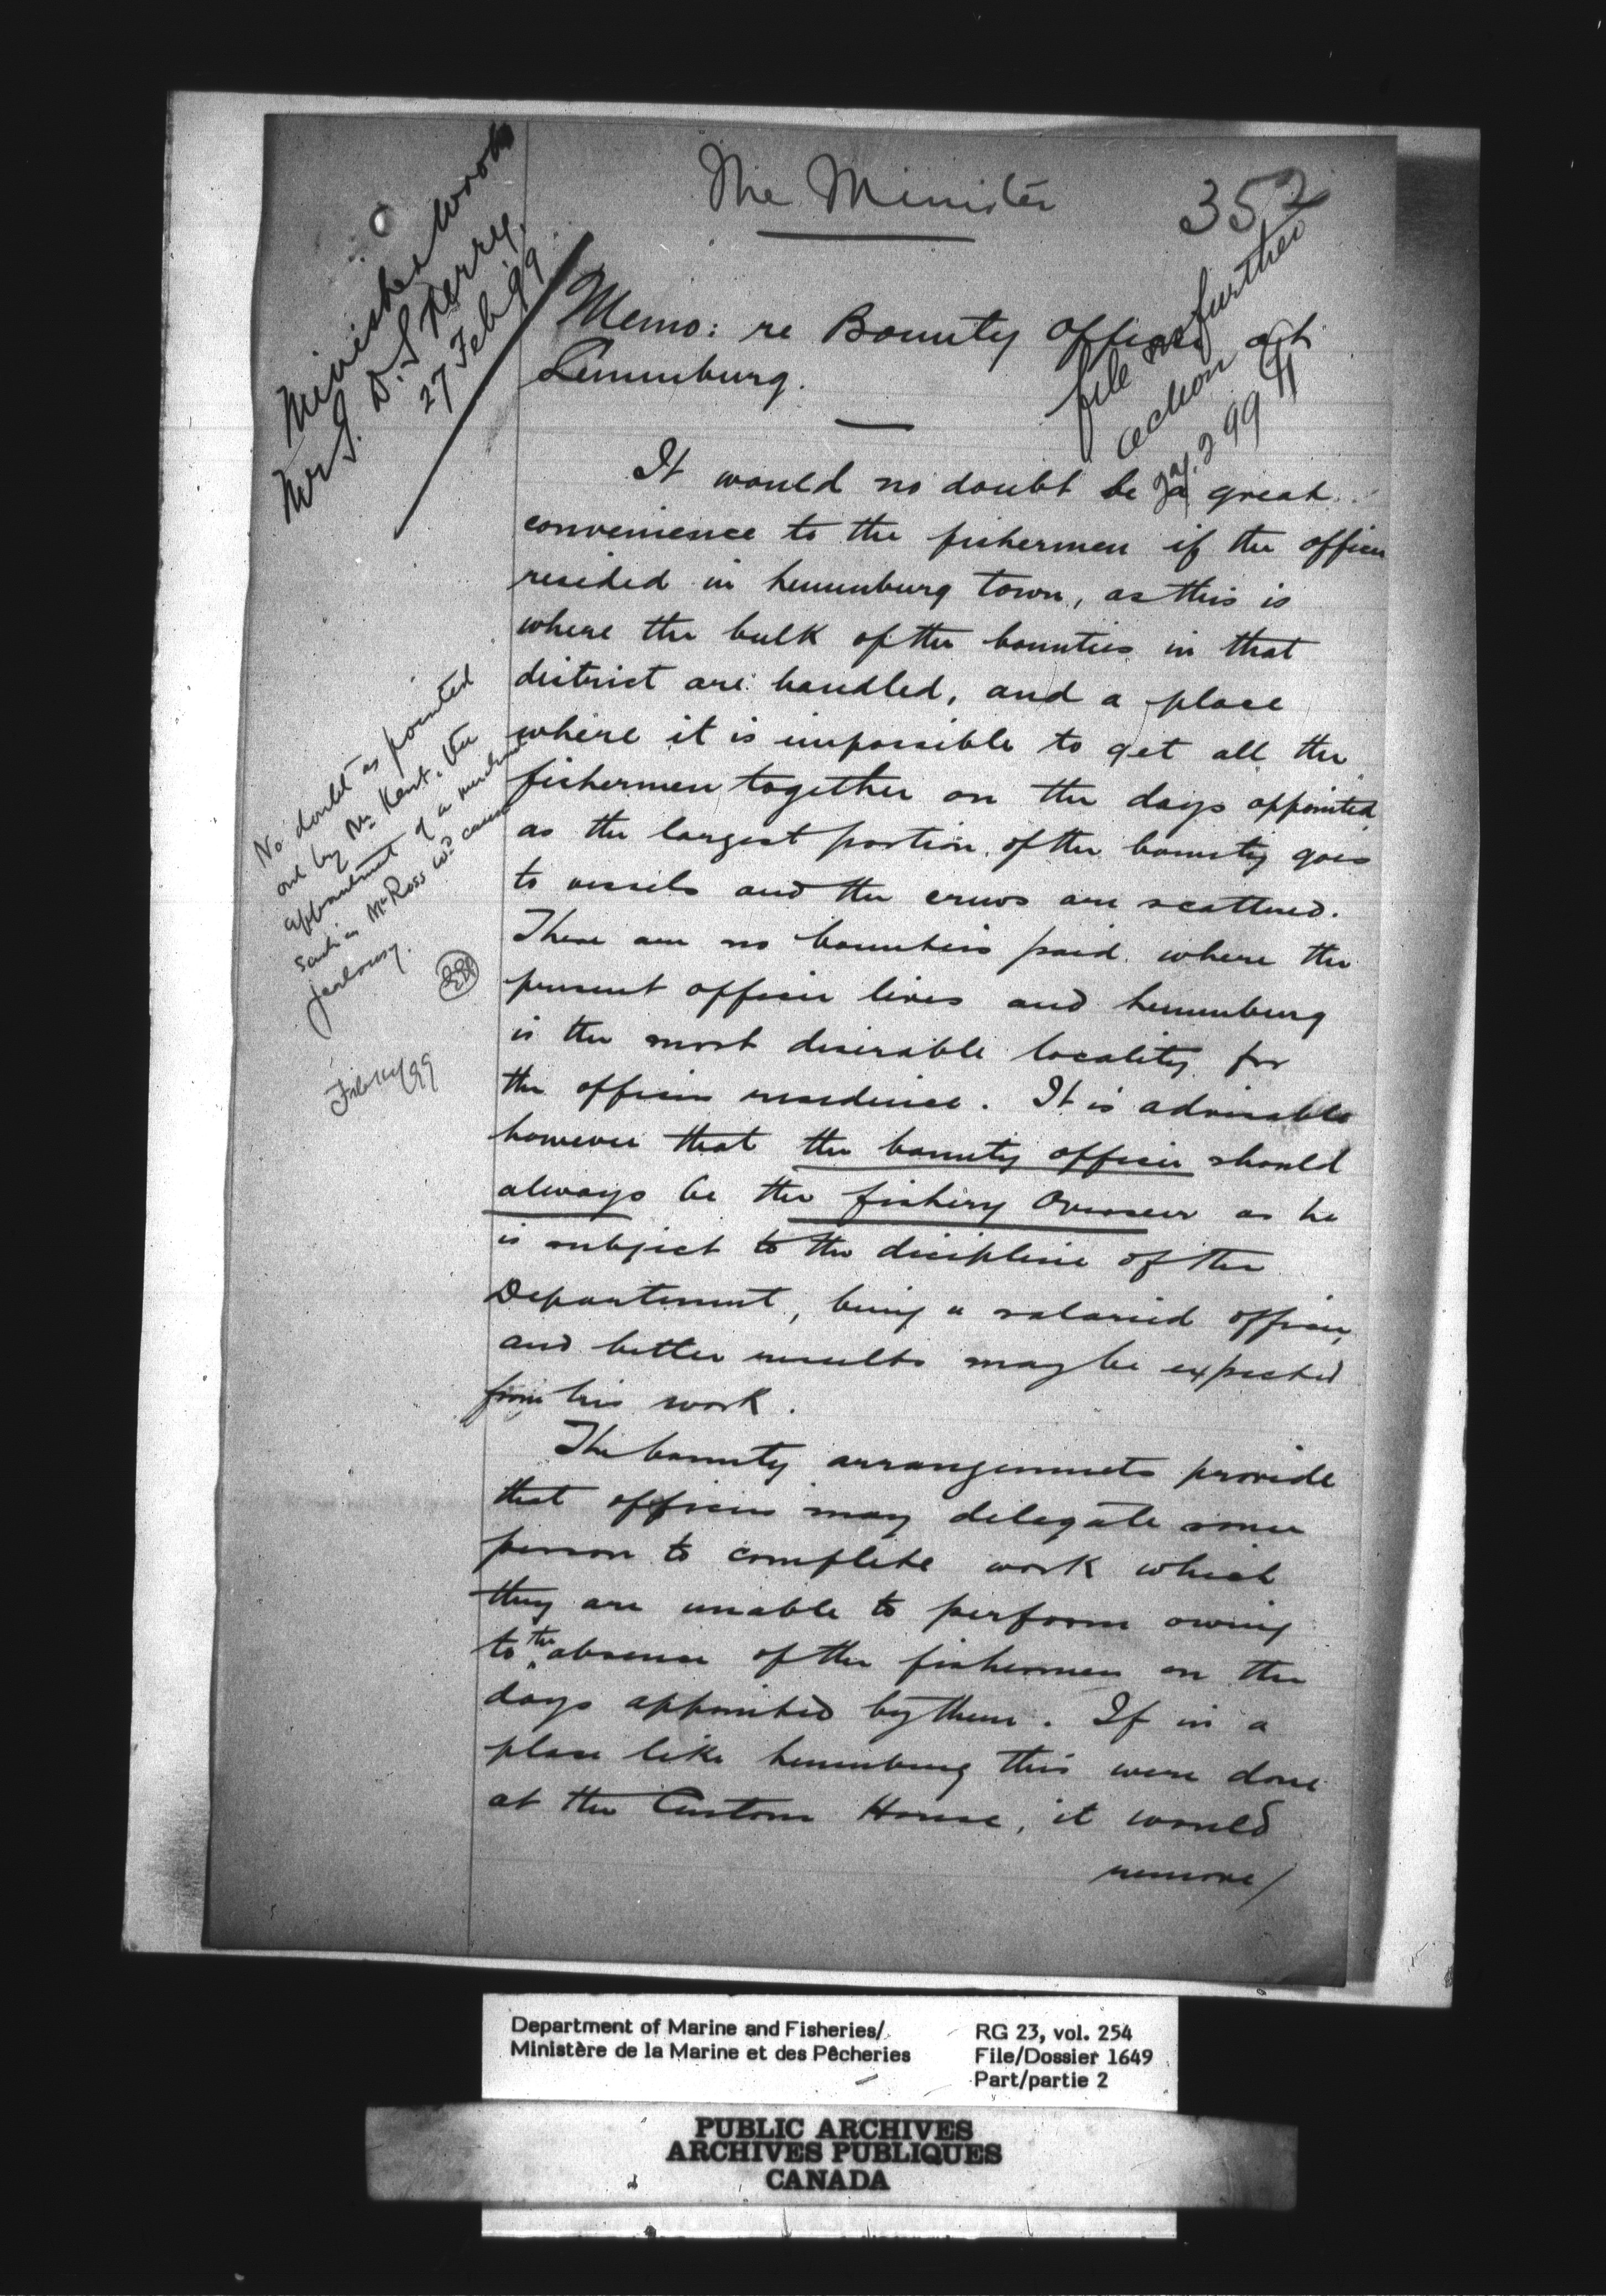 The Minister
352
Minister wrote
Mr J. D. Sperry.
27 Feb 99
file no further
action
Memo: re Bounty Officer at
Lunenburg.
It would no doubt be a great
convenience to the fishermen if the officer
resided in Lunenburg town, as this is
where the bulk of the bounties in that
district are handled, and a place
where it is impossible to get all the
fishermen together on the days appointed
as the largest portion of the bounty goes
to vessels and the crews are scattered.
There are no bounties paid where the
present officer lives and Lunenburg
is the most desirable locality for
the officers residence. It is advisable
however that the bounty officer should
always be the fishery Overseer as he
is subject to the discipline of the
Department, being a salaried officer,
and better results may be expected
from his work.
The bounty arrangements provide
that officers may delegate some
person to complete work which
they are unable to perform owing
to the absence of the fishermen on the
days appointed by them. If in a
place like Lunenburg this were done
at the Custom House, it would
remove/
No doubt as pointed
out by Mr Kent, the
appointment of a merchant
such as Mr Ross wd cause
jealousy.
Department of Marine and Fisheries/
Ministère de la Marine et des Pêcheries
RG 23, vol. 254
File/Dossier 1649
Part/partie 2
PUBLIC ARCHIVES
ARCHIVES PUBLIQUES
CANADA